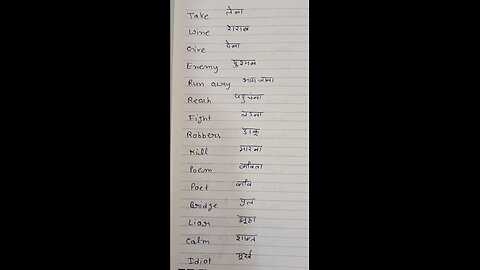 Take लेना
Wine शराब
Give देना
Enemy दुश्मन
Run away भाग जाना
Reach पहुचना
Fight लडना
Robbers डाकू
Kill मारना
Poem कविता
Poet कवि
Bridge पुल
Liar झूठा
Calm शान्त
Idiot मूर्ख